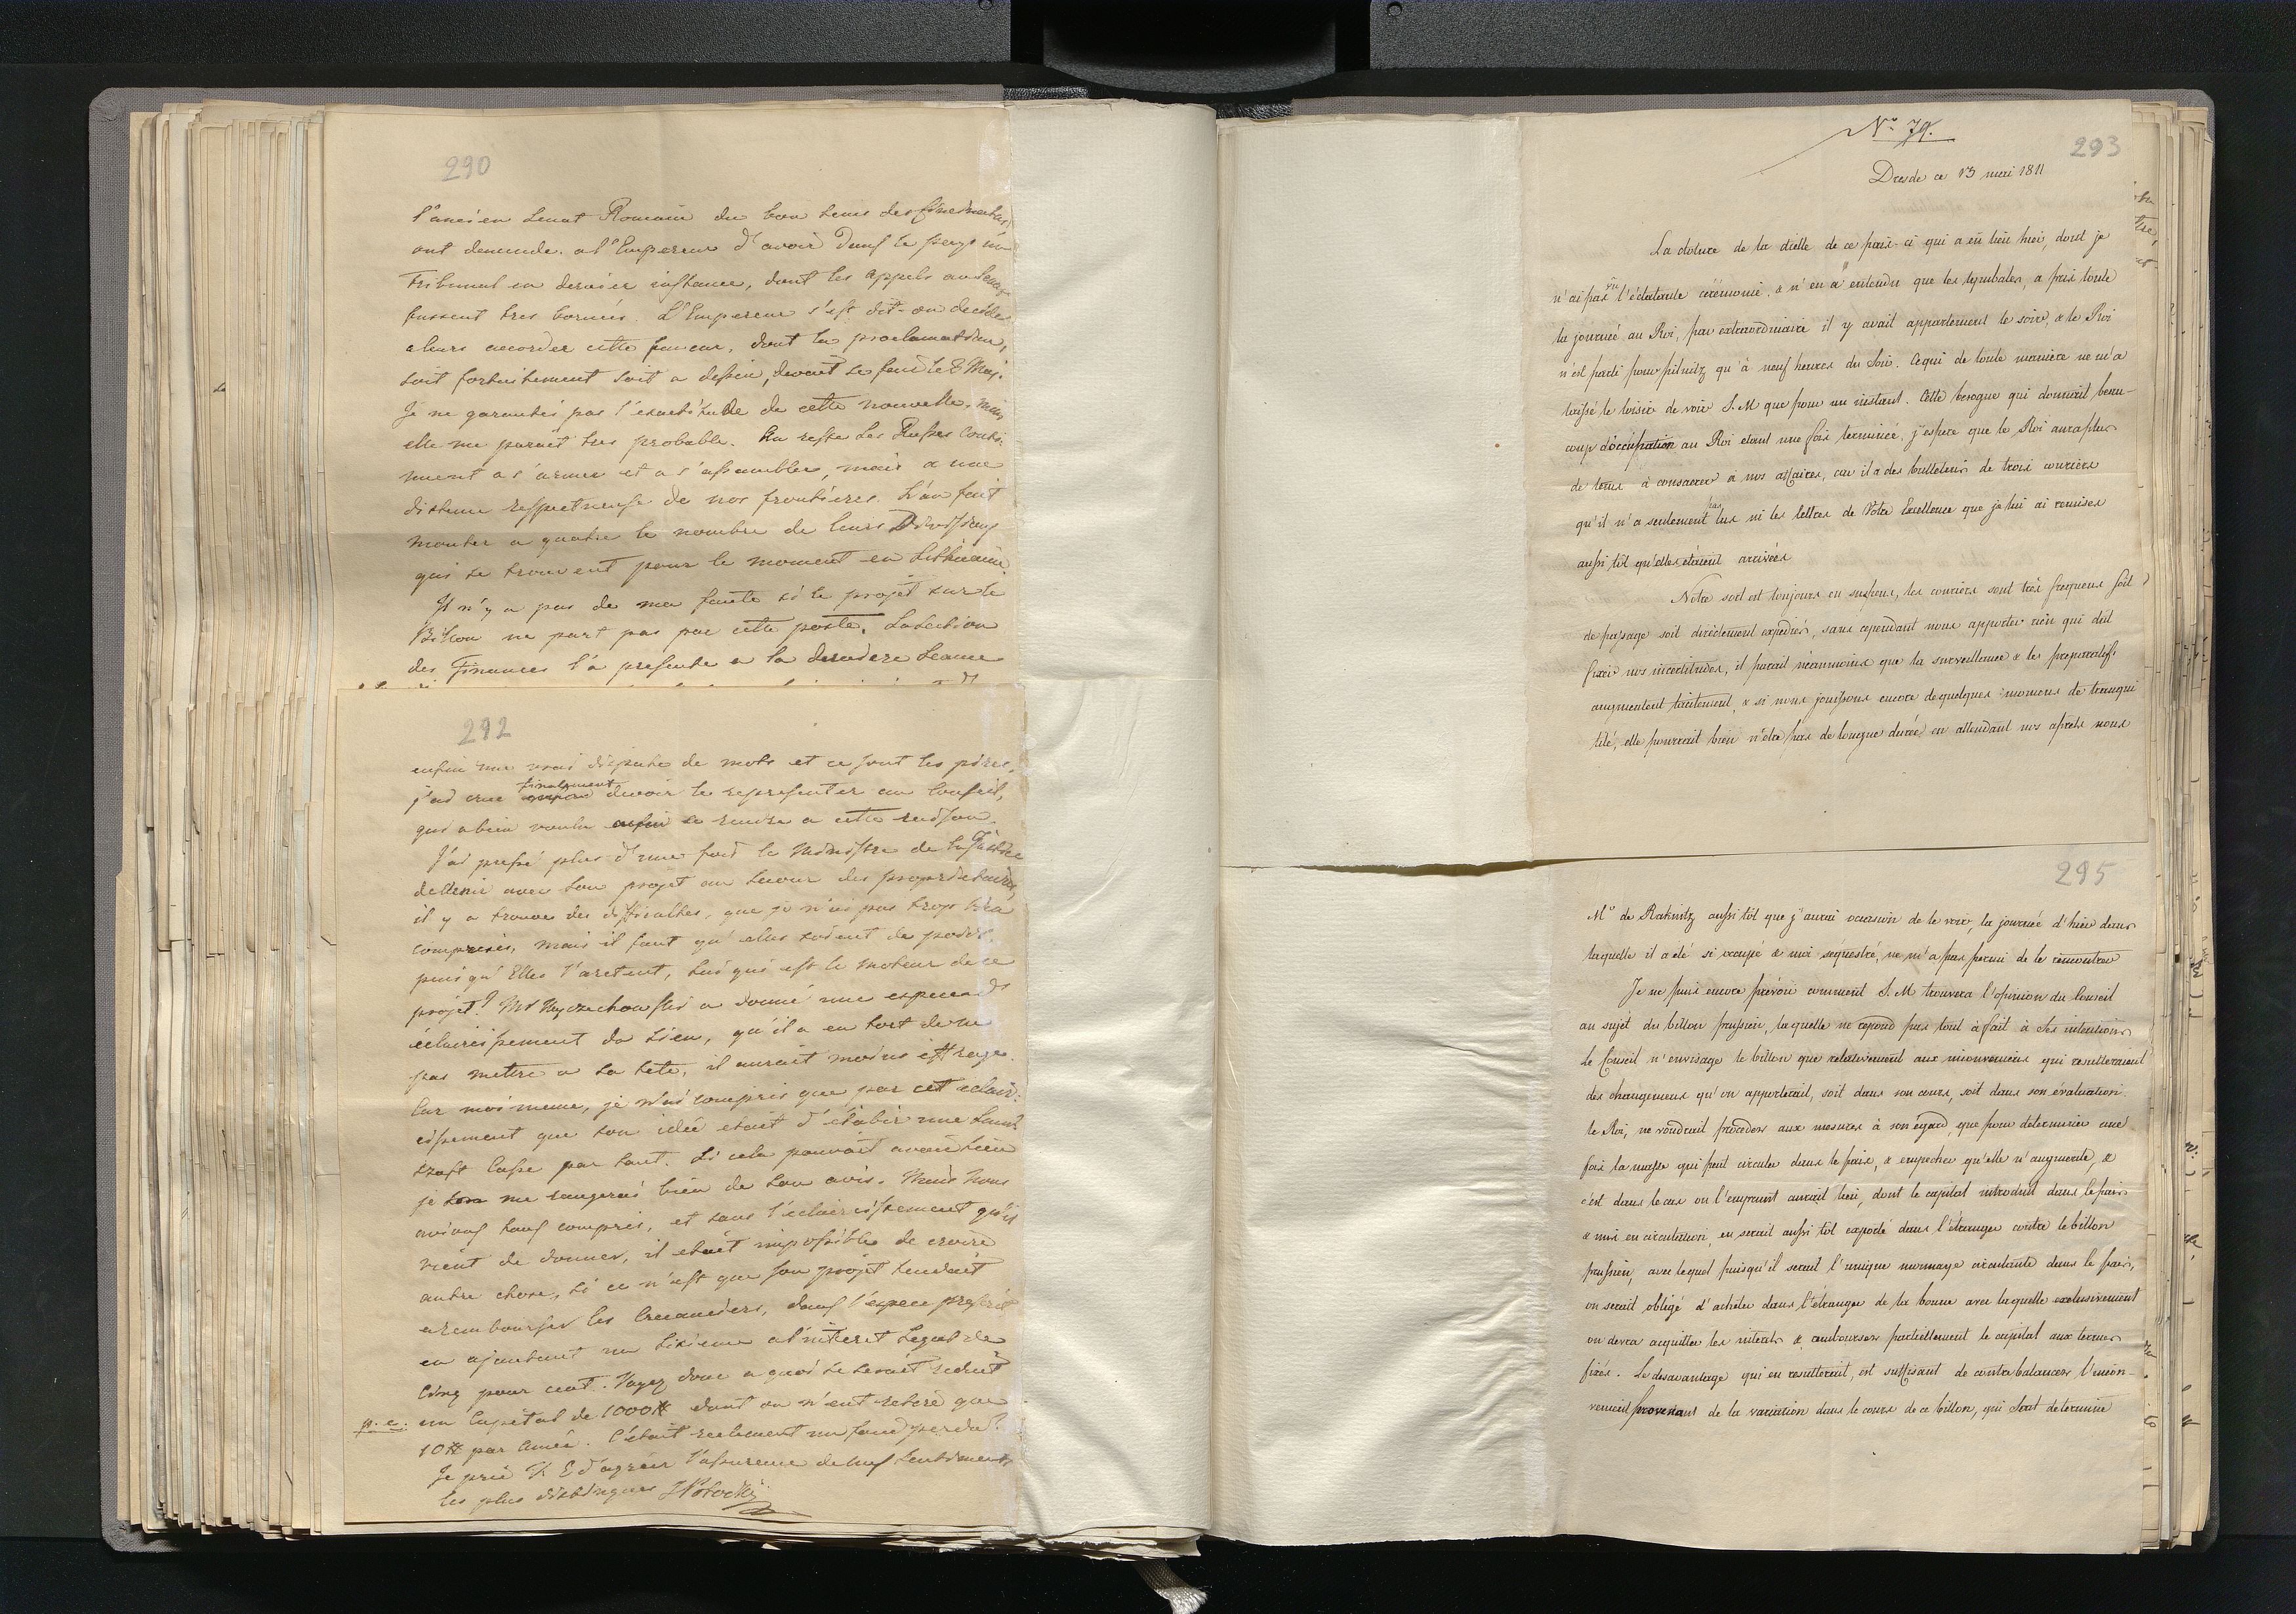 290
l'ancien Senat Romain du bon tems des
ont demandé a l'Empereur d'avoir dans le pays un
Tribunal en dernier instance, dont les appels au Senat
fussent tres bornés. L'Empereur s'est dit-on decidé
a leurs accorder cette faveur, dont la proclamation,
soit fortuitement soit a dessein, devait se faire le 8 May.
Je ne garantis pas l'exactitude de cette nouvelle, mais
elle me parait tres probable. Au reste les Russes conti-
nuent a s'armer et a s'assembler, mais a une
distance respectueuse de nos frontieres. L'on fait
monter a quatre le nombre de leurs Divisions
qui se trouvent pour le moment en Lithuanie.
Il n'y a pas de ma faute si le projet sur le
Billon ne part pas par cette poste. La Section
des Finances l'a presenté a la derniere Seance
292
enfin une vrai dispute de mots et ce sont les pires.
j'ai crue finalement devoir le representer au Conseil,
qui a bien voulu enfin se rendre a cette raison.
J'ai pressé plus d'une fois le Ministre de la Justice
de venir avec son projet au secour des proprietaires,
il y a trouvé des difficultés, que je n'ai pas trop bien
comprises, mais il faut qu'elles soient de poids,
puisqu'Elles l'aretent, lui qui est le moteur de ce
projet? Mr Wyczechowski a donné une espece d'
éclaircissement du sien, qu'il a eu tort de ne
pas mettre a la tete, il aurait moins effrayé.
Car moi meme, je n'ai compris que par cet eclair-
cissement que son idée etait d'etablir une Land
szaft Casse par tout. Si cela pouvait avoir lieu
je me rangerai bien de son avis. Mais nous
avions tous compris, et sans l'éclaircissement qu'il
vient de donner, il etait impossible de croire
autre chose, si ce n'est que son projet tendait
a rembourser les Creanciers, dans l'espece prescrit
en ajoutant un sixieme a l'interet Legal de
Cinq pour cent. Voyez donc a quoi se serait reduit
p. e. un Capital de 1000# dont on n'eut retiré que
10# par Année. C'était reelement un fond perdu?
Je prie V. E d'agréer l'assurance de mes sentiments
les plus distingués SPotocki
No 79.
293
Dresde ce 13 mai 1811
La cloture de la diette de ce pais-ci qui a eû lieu hier, dont je
n'ai pas vu l'éclatante cérémonie, & n'en a entendu que les tymbales, a pris toute
la journée au Roi, par extraordinaire il y avait appartement le soir, & le Roi
n'est parti pour pilnitz qu'à neuf heures du Soir. Cequi de toute maniere ne m'a
laissé le loisir de voir S. M que pour un instant. Cette besogne qui donnait beau-
coup d'occupation au Roi etant une fois terminée, j'espere que le Roi aura plus
de tems à consacrer à nos affaires, car il a des bulletins de trois couriers
qu'il n'a seulement pas lus ni les lettres de Votre Excellence que je lui ai remises
aussi tôt qu'elles étaient arrivées
Notre sort est toujours en suspens, les couriers sont très frequens soit
de passage soit directement expediés, sans cependant nous apporter rien qui dût
fixer nos incertitudes, il parait néanmoins que la surveillance & les preparatifs
augmentent tacitement, & si nous jouissons encore de quelques momens de tranqui
lité, elle pourrait bien n'etre pas de longue durée en attendant nos aprets nous
295
Mr de Raknitz aussi tôt que j'aurai occasion de le voir, la journée d'hier dans
laquelle il a été si occupé & moi séquestré, ne m'a pas permi de le rencontrer
Je ne puis encore prévoir comment S. M trouvera l'opinion du Conseil
au sujet du billon prussien, laquelle ne repond pas tout à fait à Ses intentions
Le Conseil n'envisage le billon que relativement aux inconveniens qui resulteraient
des changemens qu'on apporterait, soit dans son cours, soit dans son évaluation.
le Roi, ne voudrait proceder aux mesures à son égard, que pour determiner une
fois la masse qui peut circuler dans le pais, & empecher qu'elle n'augmente, &
c'est dans le cas ou l'emprunt aurait lieu, dont le capital introduit dans le pais
& mis en circulation, en serait aussi tôt exporté dans l'étranger contre le billon
prussien, avec lequel puisqu'il serait l'unique monnaye circulante dans le pais,
on serait obligé d'acheter dans l'étranger de la bonne avec laquelle exclusivement
on devra acquitter les interets & rembourser partiellement le capital aux termes
fixés. Le desavantage qui en resulterait, est suffisant de contrebalancer l'incon-
venient provenant de la variation dans le cours de ce billon, qui serait determiné